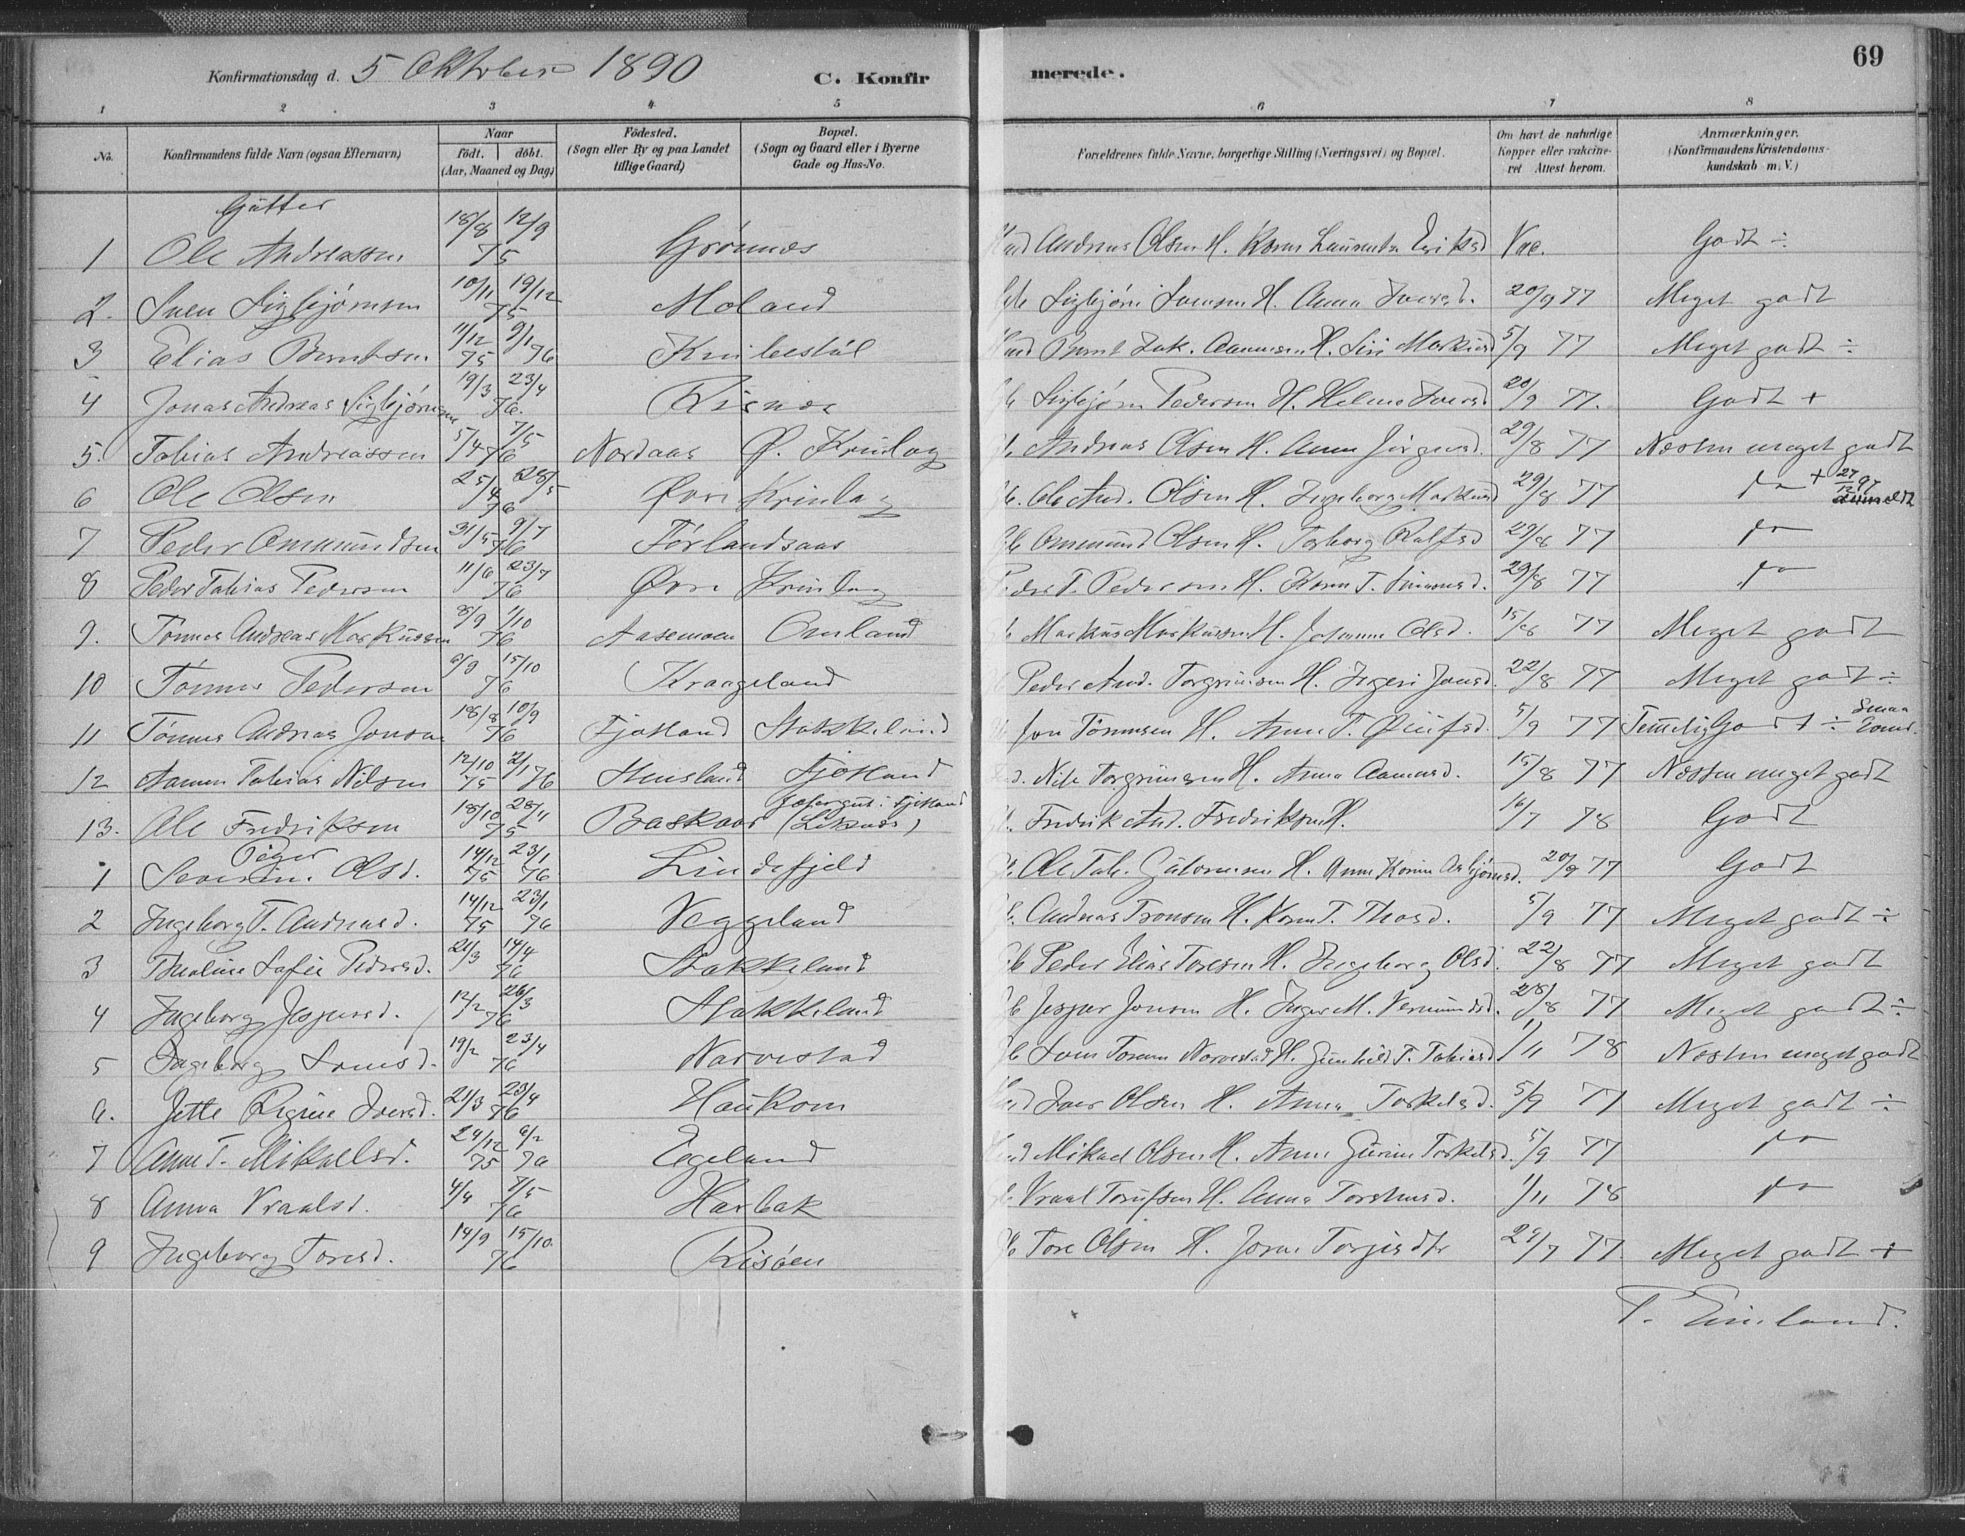 69
Konfirmationsdag d. 5 Oktober 1890 C. Konfirmerede.
1 2 3 4 5 6 7 8
No. Konfirmandens fulde Navn (ogsaa Efternavn) Naar født. døbt. (Aar, Maaned og Dag) Fødested. (Sogn eller By og paa Landet tillige Gaard) Bopæl. (Sogn og Gaard eller i Byerne Gade og Hus-No. Forældrenes fulde Navne, borgerlige Stilling (Næringsvei) og Bopæl. Om havt de naturlige Kopper eller vakcineret Attest herom. Anmærkninger. (Konfirmandens Kristendomskundskab m. V.)
Gutter
1 Ole Andreassen 18/8 12/9 75 Grønnes Andreas Olsen H. Karen Laurentse Eriksd Vac. Godt ÷
2. Sven Sigbjørnsen 10/11 19/12 75 Moland Sigbjørn Svensen H. Anna Iversd. 20/9 77 Meget godt
3 Elias Berntsen 11/12 75 9/1 76 Knibestøl Bernt Zak. Aamunsen H. Siri Markusd 5/9 77 Meget godt ÷
4 Jonas Andreas Sigbjørnsen 19/3 23/4 76. Risnes Sigbjørn Pedersen H. Helene Iversd. 20/9 77. Godt +
5. Tobias Andreassen 5/4 7/5 76 Nordaas Ø. Krinlag Andreas Olsen H. Anna Jørgensd. 29/8 77 Næsten meget godt
6 Ole Olsen 25/4 28/5 76 Øvre Krinlag Ole And. Olsen H. Ingeborg Markusd 29/8 77 do + 27/12 97
7 Peder Ommundsen 31/5 9/7 76 Førlandsaas Ommund Olsen H. Torborg Rolfsd 29/8 77 do
8 Peder Tobias Pedersen 11/6 23/7 76 Øvre Krinlag Peder T. Pedersen H. Karen T. Simonsd. 29/8 77 do
9. Tønnes Andreas Markussen 8/9 1/10 76 Aasemoen Omland Markus Markussen H. Johanne Olsd. 15/8 77 Meget godt
10 Tønnes Pedersen 6/9 15/10 76 Kraageland Peder And. Torgrimsen H. Ingeri Jonsd. 22/8 77 Meget godt ÷
11 Tønnes Andreas Jonsen 18/8 10/9 76 Fjotland Stakkeland Jon Tønnesen H. Anne T. 5/9 77 Temelig Godt ÷
12 Aamun Tobias Nilsen 12/10 75 2/1 76 Hensland Fjotland Nils Torgrimsen H. Anna Aamunsd. 15/8 77 Næsten meget godt
13. Ole Fredriksen 18/10 28/11 75 Baskaar i Fjotland (Liknes) Fredrik And. Fredriksen H. 16/7 78 Godt
Piger
1 Severine Olsd. 14/12 75 23/1 76 Lindefjeld Ole Tob. Gutormsen H. Anne Karine Asbjørnsd. 20/9 77 Godt
2 Ingeborg T. Andreasd. 14/12 75 23/1 76 Veggeland Andreas Tronsen H. Karen T. Thosd. 5/9 77 Meget godt ÷
3 Thealine Sofie Pedersd. 21/3 17/4 76 Stakkeland Peder Elias Toresen H. Ingeborg Olsd. 22/8 77 Meget godt
4 Ingeborg Jespersd. 12/2 26/3 76 Stakkeland Jesper Jonsen H. Inger M. Vermundsd. 28/8 77 Meget godt ÷
5 Ingeborg Lomsd. 19/2 23/4 76 Narvestad Lom Tommen Narvestad H. Gunhild T. Tobiasd 1/11 78 Næsten meget godt
6. Jette Regine Iversd. 21/3 23/4 76 Haukom Iver Olsen H. Anna Torkelsd. 5/9 77 Meget godt ÷
7 Anne T. Mikaelsd. 24/12 75 6/2 76 Egeland Mikael Olsen H. Anne Gurine Torkelsd. 5/9 77 do
8 Anna Vraalsd. 4/4 7/5 76 Harbak Vraal Torufsen H. Anna Torstensd. 1/11 78 do
9 Ingeborg Toresd. 14/9 15/10 76 Risøen Tore Olsen H. Jorine Torjesdtr 21/7 77 Meget godt +